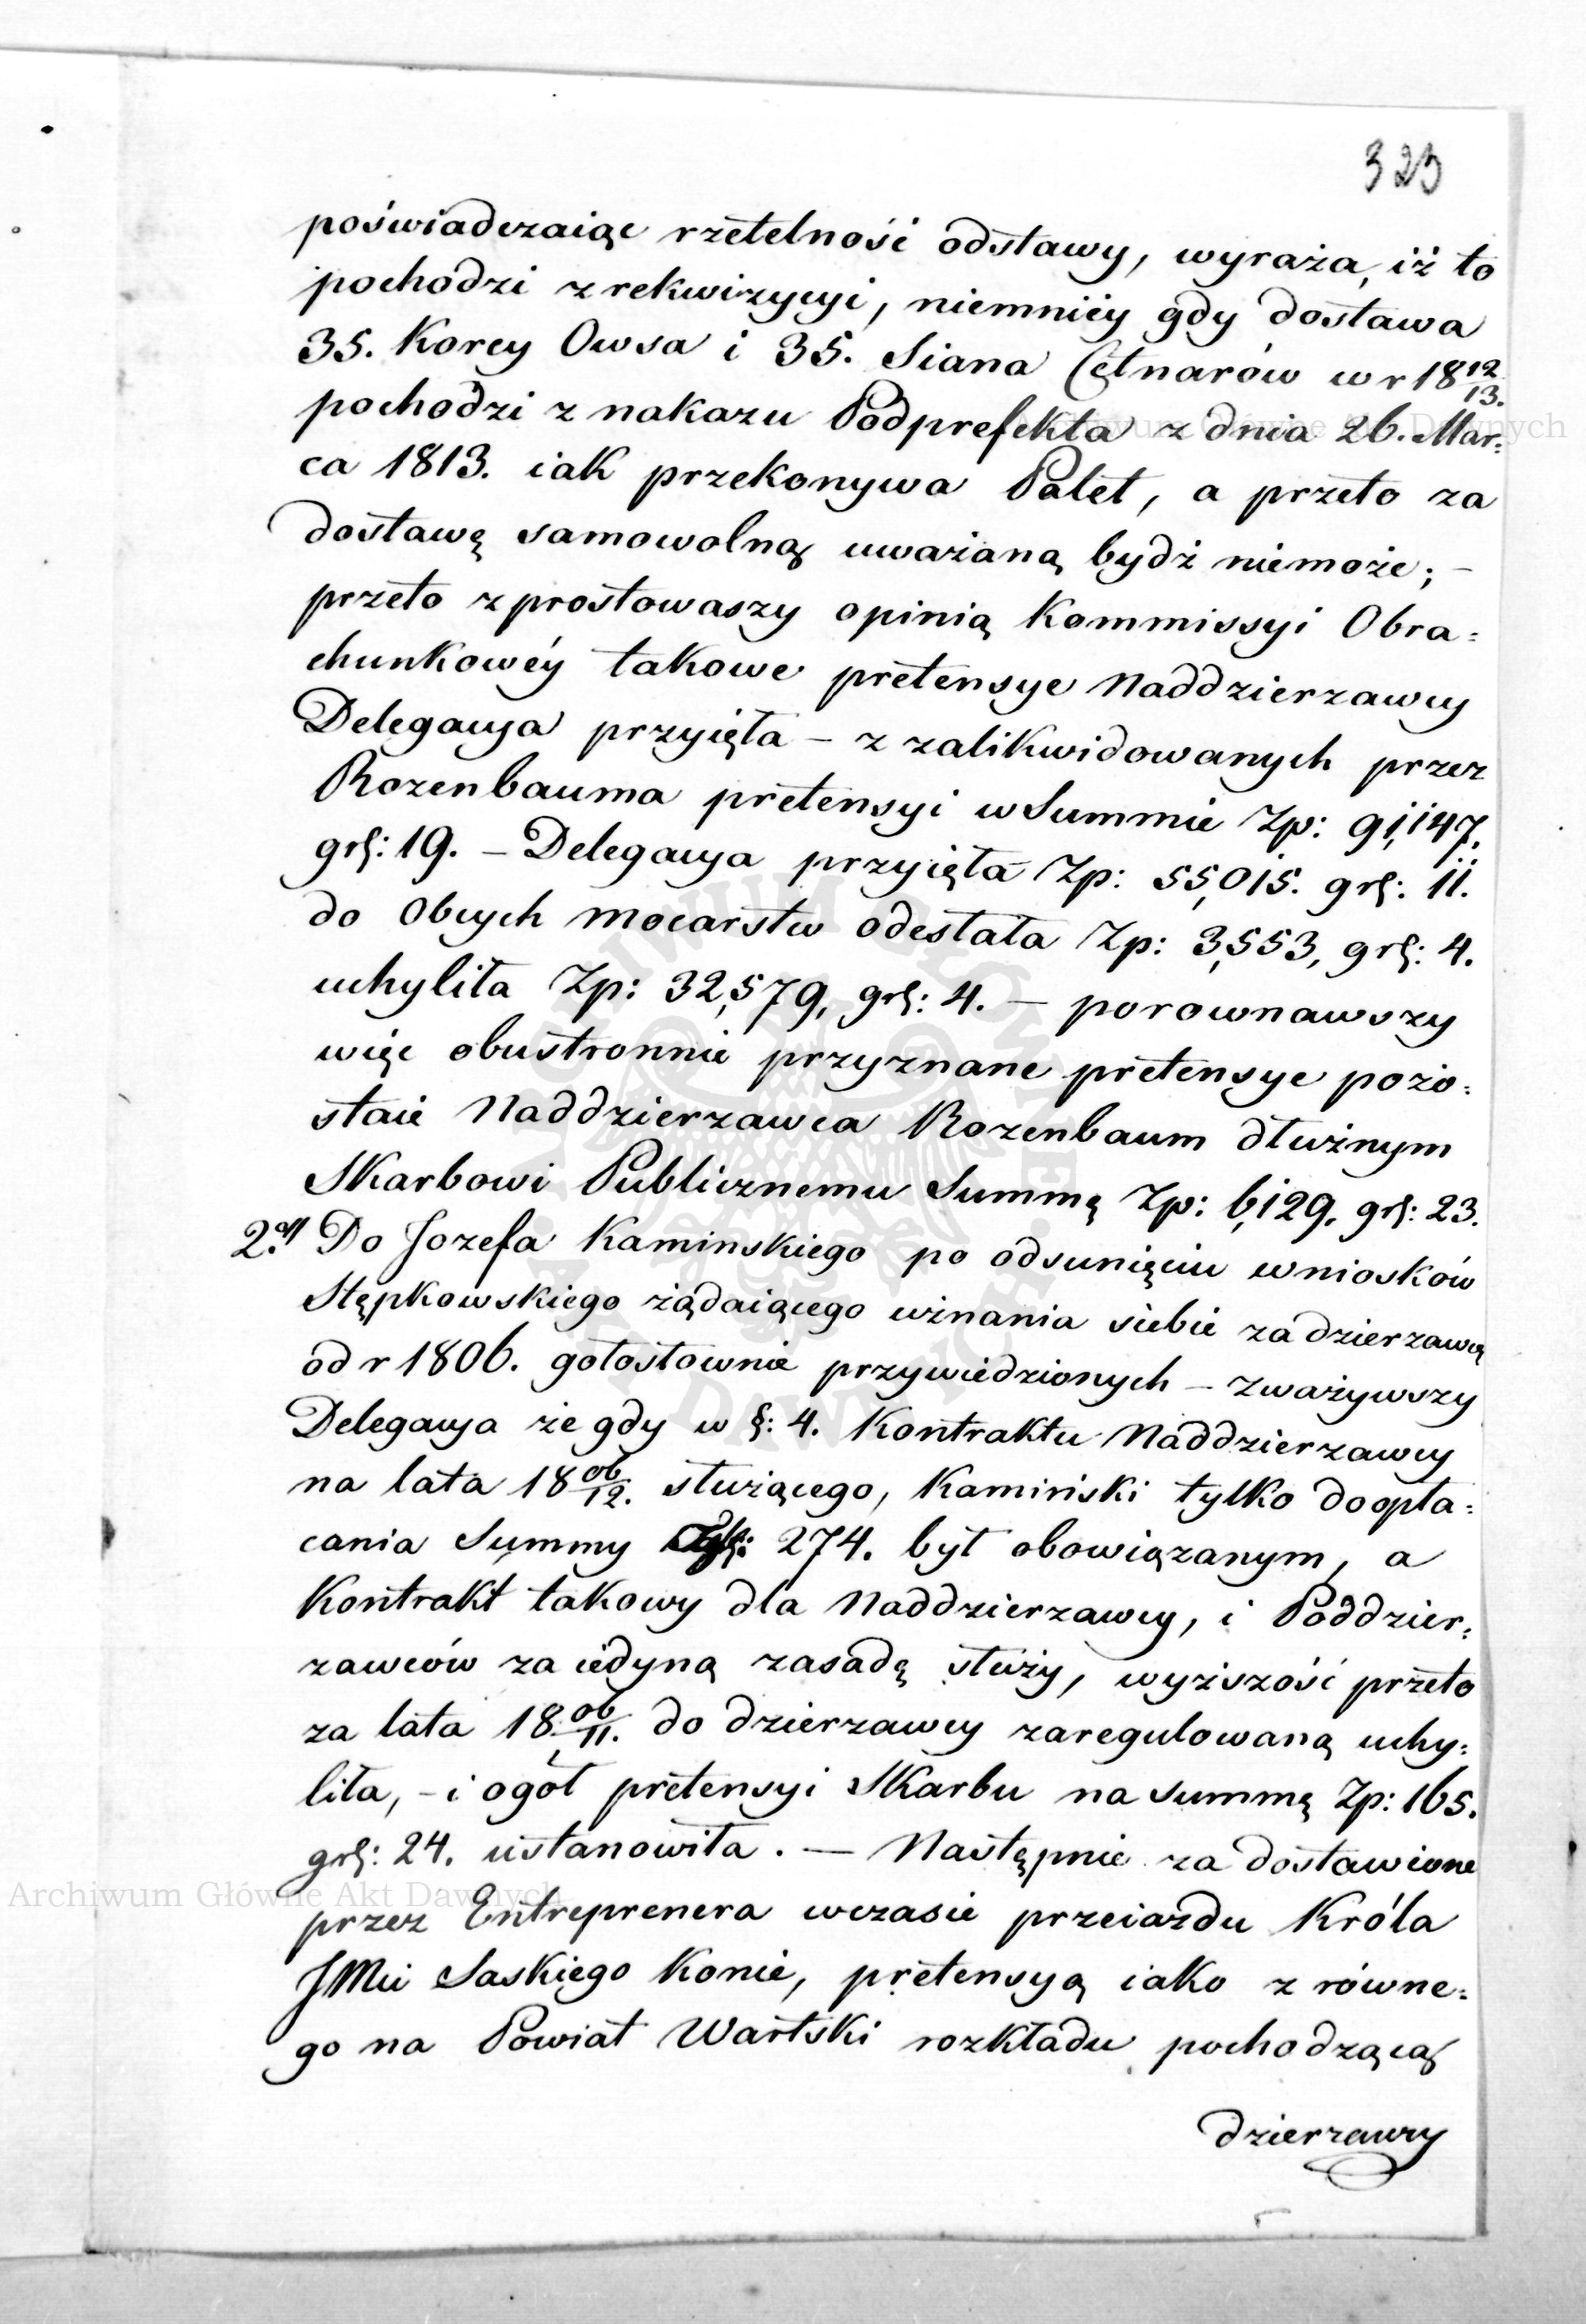 323
poświadczaiąc rzetelność odstawy, wyraża, iż to
pochodzi z rekwizycyi, niemniéy gdy dostawa
35. Korcy Owsa i 35. Siana Cętnarów w r 18 12/13.
pochodzi z nakazu Podprefekta z dnia 26. Mar:
ca 1813. iak przekonywa Palet, a przeto za
dostawę samowolną uważaną bydź niemoże; –
przeto zprostowaszy opinią Kommissyi Obra:
chunkowéy takowe pretensye Naddzierzawcy
Delegacya przyięta – z zalikwidowanych przez
Rozenbauma pretensyi w Summie Zp: 91,147.
grß: 19. – Delegacya przyięta Zp: 55,015. grß: 11.
do Obcych mocarstw odestała Zp: 3,553, grß: 4.
uchyliła Zp: 32,579, grß: 4. – porownawszy
więc obustronnie przyznane pretensye pozo:
staie Naddzierzawca Rozenbaum dłużnym
Skarbowi Publicznemu Summę Zp: 6,129. grß: 23.
2. Do Jozefa Kaminskiego po odsunięciu wniosków
Stępkowskiego żądaiącego uznania siebie za dzierzawcę
od r 1806. gołosłownie przywiedzionych – zważywszy
Delegacya że gdy w §: 4. Kontraktu Naddzierzawcy
na lata 18 06/12. służącego, Kamiński tylko do opła:
cania Summy 274. był obowiązanym, a
Kontrakt takowy dla Naddzierzawcy, i Poddzier:
zawców za iedyną zasadę służy, wyższość przeto
za lata 18 06/11. do dzierzawcy zaregulowaną uchy:
liła, – i ogół pretensyi Skarbu na summę Zp: 165.
grß: 24. ustanowiła. — Następnie za dostawione
przez Entreprenera wczasie przeiazdu Króla
JMci Saskiego Konie, pretensyą iako z równe:
go na Powiat Wartski rozkładu pochodzącą
dzierzawcy
Archiwum Główne Akt Dawnych